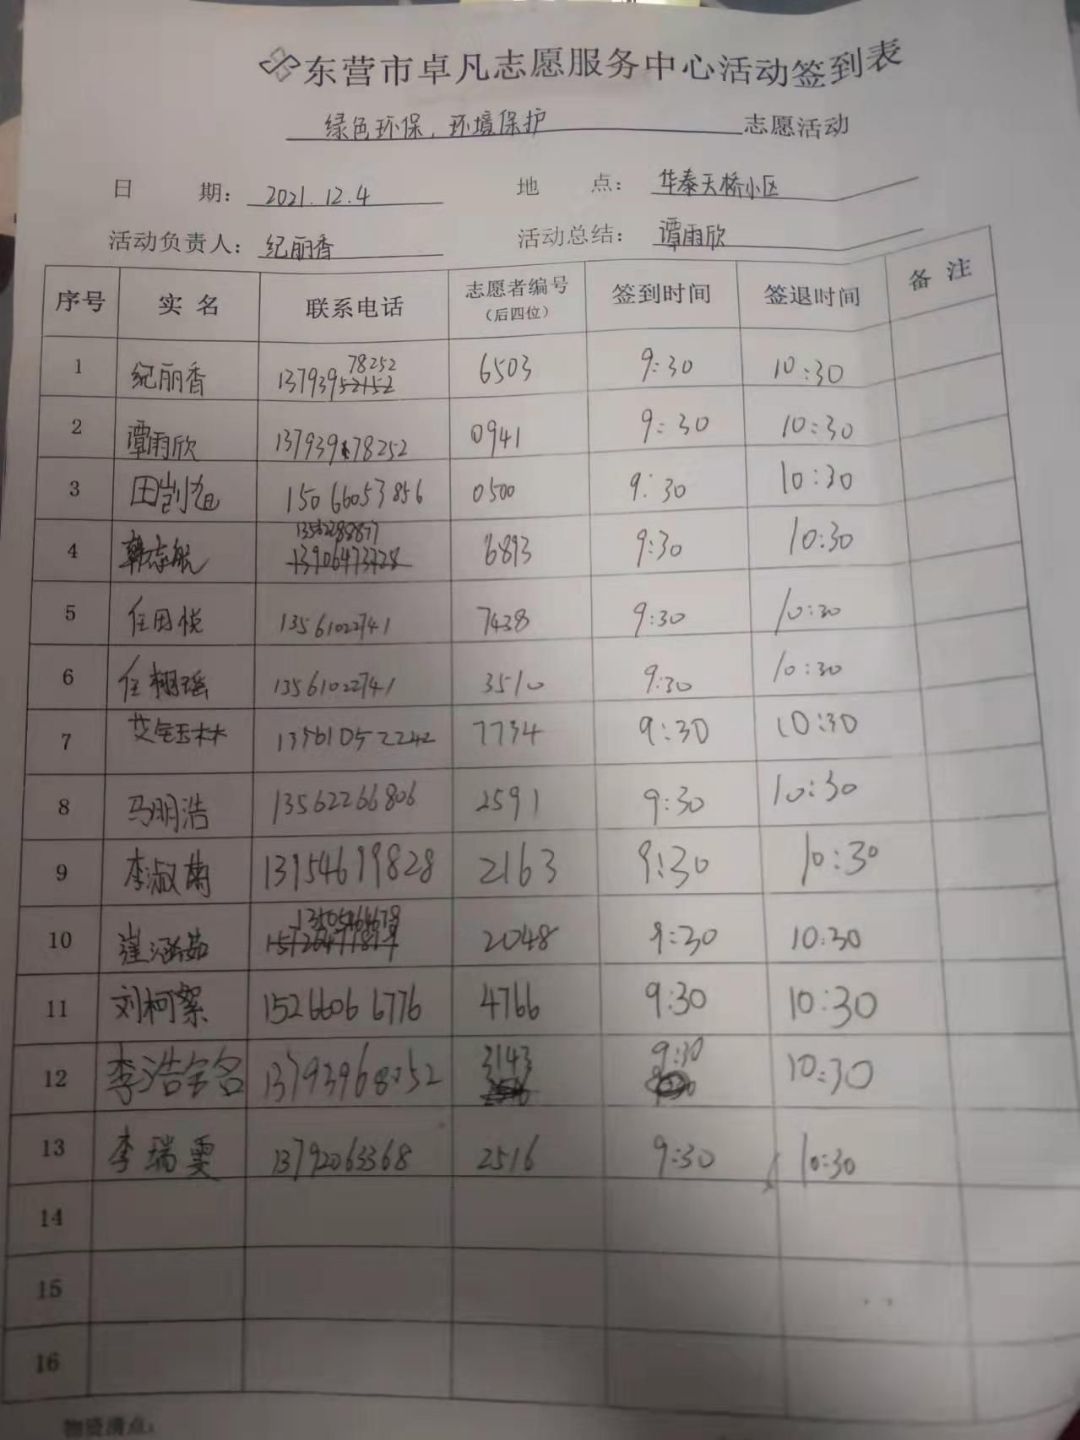 东营市卓凡志愿服务中心活动签到表
绿色环保，环境保护 志愿活动
日 期：2021.12.4 地 点：华泰天桥小区
活动负责人：纪丽香 活动总结：谭雨欣
序号 实名 联系电话 志愿者编号（后四位） 签到时间 签退时间 备注
78252
1 纪丽香 13793952152 6503 9:30 10:30
2 谭雨欣 13793978252 0941 9:30 10:30
3 田凯旭 15066053856 0500 9:30 10:30
4 韩志航 6893 9:30 10:30
5 任田悦 13561022741 7438 9:30 10:30
6 任栩瑶 13561022741 3510 9:30 10:30
7 7734 9:30 10:30
8 马明浩 13562266806 2591 9:30 10:30
9 李淑菊 13954619828 2163 9:30 10:30
10 崔涵茹 2048 9:30 10:30
11 刘柯絮 15266066776 4766 9:30 10:30
12 李浩铭 13793968252 3143 9:30 10:30
13 李瑞雯 13792063368 2516 9:30 10:30
14
15
16
物资清点：